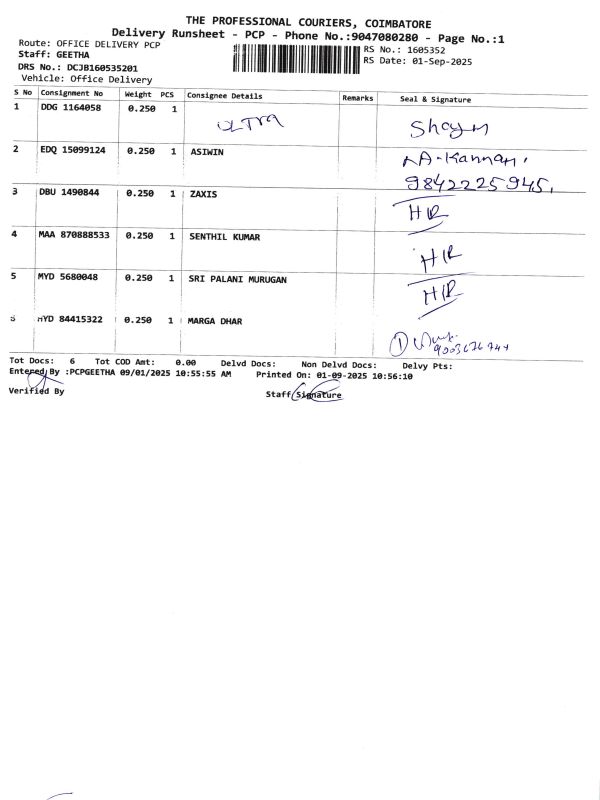 THE PROFESSIONAL COURIERS, COIMBATORE
Delivery Runsheet - PCP - Phone No.:9047080280 - Page No.:1
Route: OFFICE DELIVERY PCP
Staff: GEETHA
DRS No.: DCJB160535201
Vehicle: Office Delivery
RS No.: 1605352
RS Date: 01-Sep-2025
S No Consignment No Weight PCS Consignee Details Remarks Seal & Signature
1 DDG 1164058 0.250 1 ULTRA Shaym
2 EDQ 15099124 0.250 1 ASIWIN A-Kannan.
9842225945.
3 DBU 1490844 0.250 1 ZAXIS HR
4 MAA 870888533 0.250 1 SENTHIL KUMAR HR
5 MYD 5680048 0.250 1 SRI PALANI MURUGAN HR
6 HYD 84415322 0.250 1 MARGA DHAR 1
Tot Docs: 6 Tot COD Amt: 0.00 Delvd Docs: Non Delvd Docs: Delvy Pts:
Entered By :PCPGEETHA 09/01/2025 10:55:55 AM Printed On: 01-09-2025 10:56:10
Verified By Staff Signature